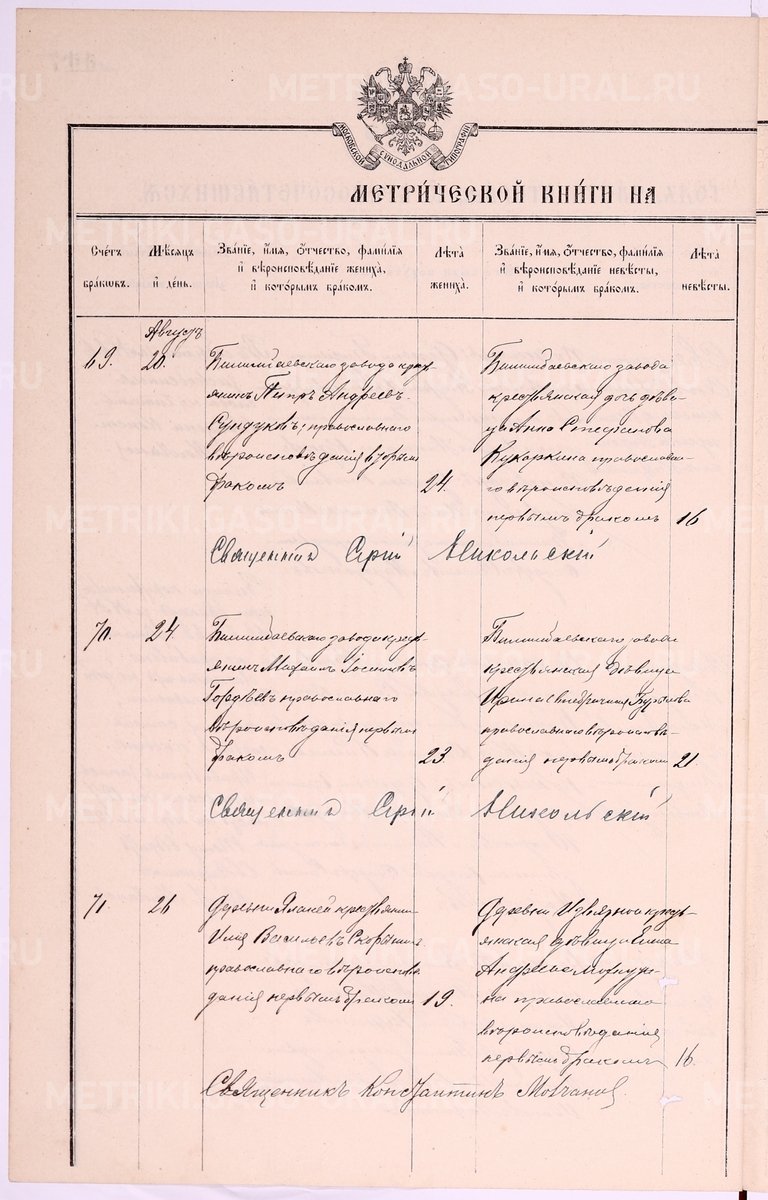 МОСКОВСКОЙ СѴНОДАЛЬНОЙ ТИПОГРАФІИ
МЕТРИ́ЧЕСКОЙ КНИ́ГИ НА
Сче́тъ бра́ковъ.
Мѣ́сяцъ и́ де́нь.
Зва́ніе, и́мя, ѻ́тчество, фами́лія и́ вѣроисповѣ́даніе жениха̀, и́ кото́рымъ бра́комъ.
Лѣ́та жениха̀.
Зва́ніе, и́мя, ѻ́тчество, фами́лія и́ вѣроисповѣ́даніе невѣ́сты, и́ кото́рымъ бра́комъ.
Лѣ́та невѣ́сты.
Августъ
69.
20.
Билимбаевскаго завода крест-
янинъ Петръ Андреевъ
Сундуковъ, православнаго
вѣроисповѣданія вторым
бракомъ
24.
Билимбаевскаго завода
крестьянская дочь дѣви-
ца Анна Стефанова
Кукаркина православна-
го вѣроисповѣданія
первымъ бракомъ
16
Священникъ Сергій Никольскій
70.
24
Билимбаевскаго завода крест-
янинъ
Гордѣевъ православнаго
вѣроисповѣданія первым
бракомъ
23.
Билимбаевскаго завода
крестьянская дѣвица
Ирина
православнаго вѣроисповѣ-
данія первымъ бракомъ
21
Священникъ Сергій Никольскій
71.
26
Деревни крестьянин
Илія Васильевъ Скорынин
православнаго вѣроисповѣ-
данія первымъ бракомъ
19.
Деревни Извѣздной крест-
янская дѣвица Елена
Андреева
на православнаго
вѣроисповѣданія
первымъ бракомъ
16.
Священникъ Константинъ Молчановъ.
METRIKI.GASO-URAL.RU